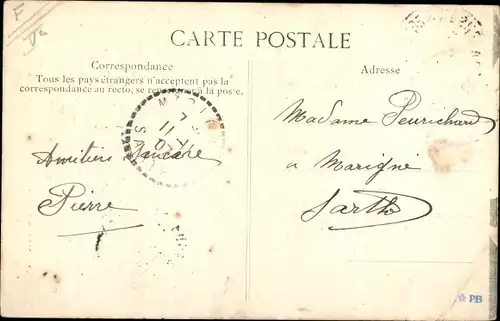 F
CARTE POSTALE
Correspondance
Tous les pays étrangers n'acceptent pas la
correspondance au recto, se renseigner à la poste.
Adresse
7
11
Amitiés Sincère
Pierre
Madame Peurichard
a Marigné
Sarthe
PB